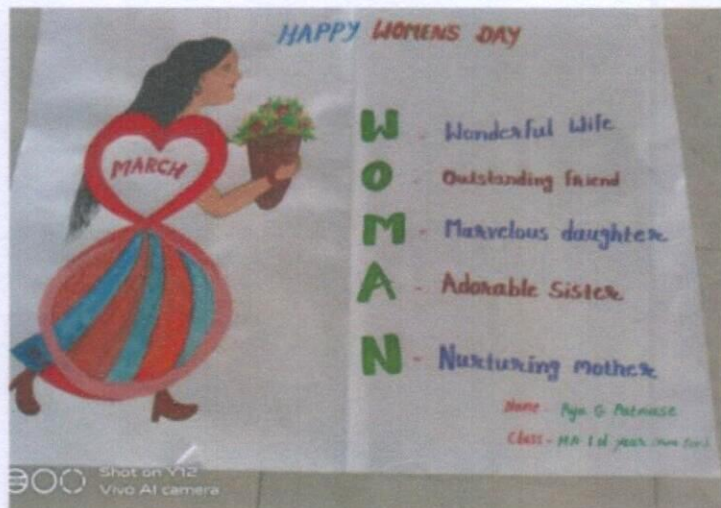 HAPPY WOMENS DAY
MARCH
W - Wonderful Wife
O - Outstanding friend
M - Marvelous daughter
A - Adorable Sister
N - Nurturing mother
Name - G
Class - MA I year
Shot on Y12
Vivo AI camera